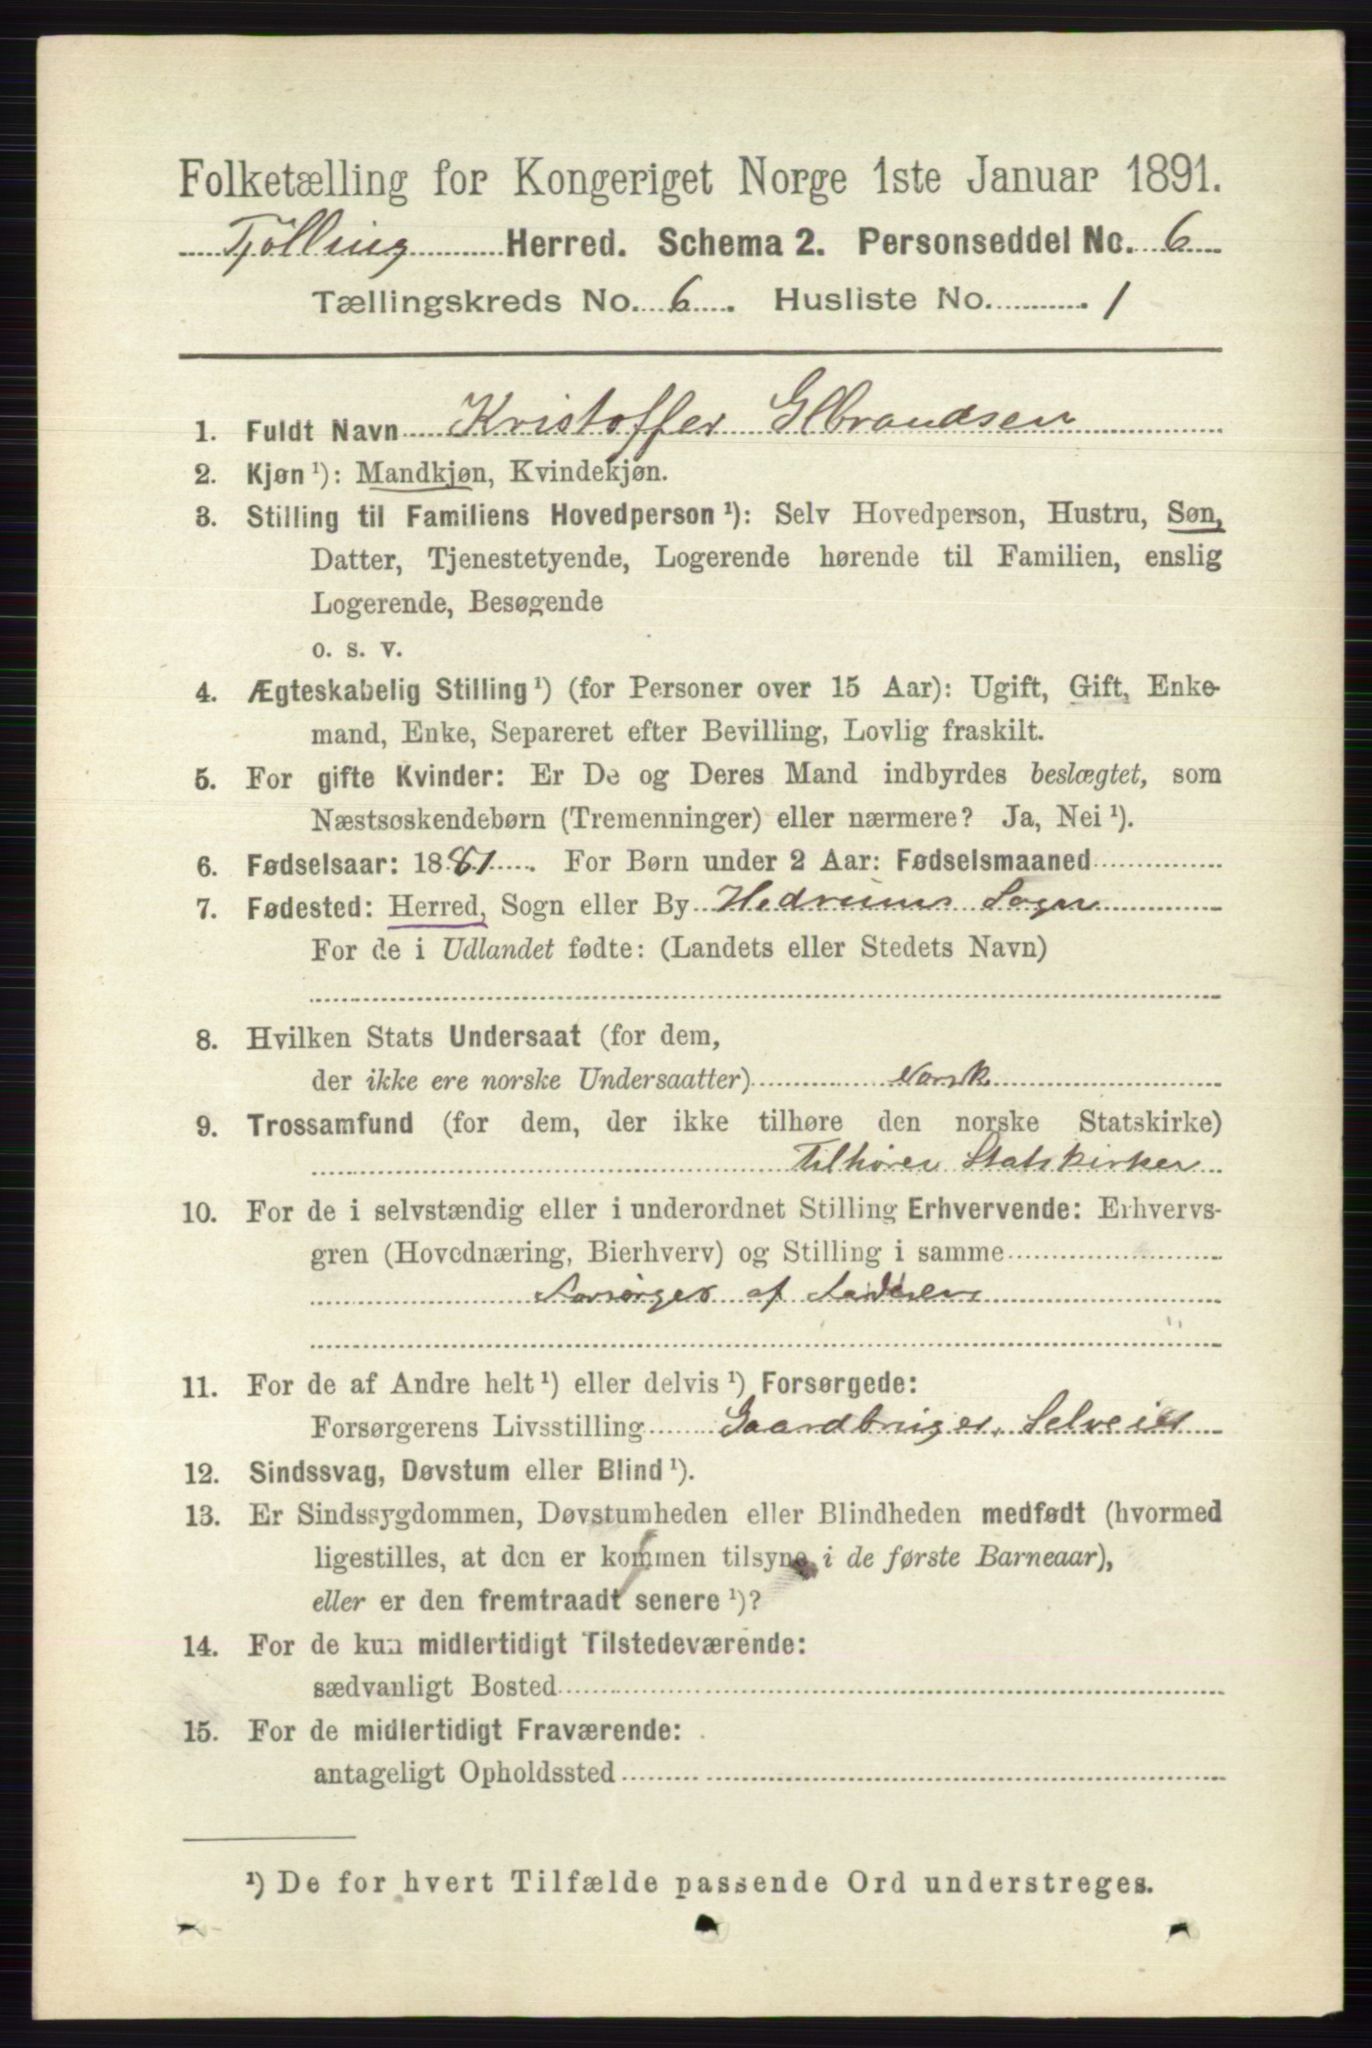 Folketælling for Kongeriget Norge 1ste Januar 1891.
Tjølling Herred. Schema 2. Personseddel No. 6
Tællingskreds No. 6. Husliste No. 1
1. Fuldt Navn Kristoffer Glbrandsen
2. Kjøn¹): Mandkjøn, Kvindekjøn.
3. Stilling til Familiens Hovedperson¹): Selv Hovedperson, Hustru, Søn,
Datter, Tjenestetyende, Logerende hørende til Familien, enslig
Logerende, Besøgende
o. s. v.
4. Ægteskabelig Stilling¹) (for Personer over 15 Aar): Ugift, Gift, Enke-
mand, Enke, Separeret efter Bevilling, Lovlig fraskilt.
5. For gifte Kvinder: Er De og Deres Mand indbyrdes beslægtet, som
Næstsøskendebørn (Tremenninger) eller nærmere? Ja, Nei¹).
6. Fødselsaar: 1881. For Børn under 2 Aar: Fødselsmaaned
7. Fødested: Herred, Sogn eller By Hedrums Sogn
For de i Udlandet fødte: (Landets eller Stedets Navn)
8. Hvilken Stats Undersaat (for dem,
der ikke ere norske Undersaatter) Norsk
9. Trossamfund (for dem, der ikke tilhøre den norske Statskirke)
Tilhører Statskirken
10. For de i selvstændig eller i underordnet Stilling Erhvervende: Erhvervs-
gren (Hovednæring, Bierhverv) og Stilling i samme
Forsørges af Faderen
11. For de af Andre helt¹) eller delvis¹) Forsørgede:
Forsørgerens Livsstilling Gaardbruger, Selveier
12. Sindssvag, Døvstum eller Blind¹).
13. Er Sindssygdommen, Døvstumheden eller Blindheden medfødt (hvormed
ligestilles, at den er kommen tilsyne i de første Barneaar),
eller er den fremtraadt senere¹)?
14. For de kun midlertidigt Tilstedeværende:
sædvanligt Bosted
15. For de midlertidigt Fraværende:
antageligt Opholdssted
¹) De for hvert Tilfælde passende Ord understreges.